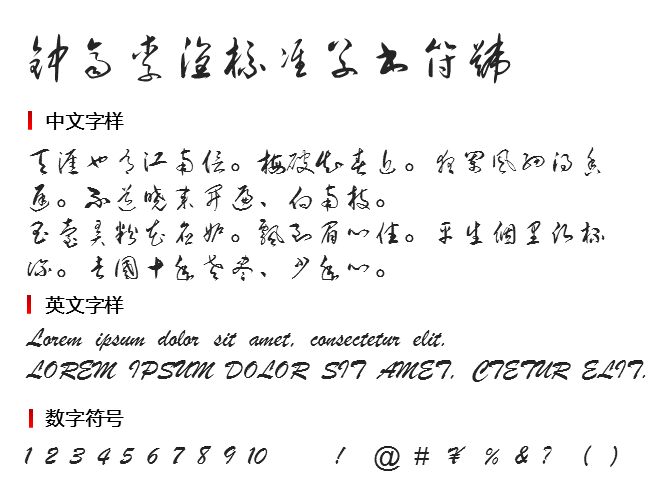 钟齐李洵标准草书符號
中文字样
天涯也有江南信。梅破知春近。夜阑风细得香
迟。不道晓来开遍、向南枝。
玉台弄粉花应妒。飘到眉心住。平生個里愿杯
深。去國十年老尽、少年心。
英文字样
Lorem ipsum dolor sit amet, consectetur elit.
LOREM IPSUM DOLOR SIT AMET, CTETUR ELIT.
数字符号
1 2 3 4 5 6 7 8 9 10 ! @ # ¥ % & ? ( )